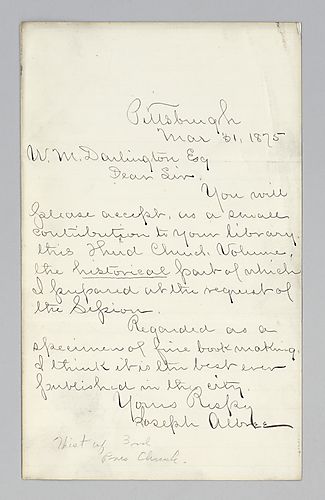 Pittsburgh
Mar 31, 1875
W. M. Darlington Esq
Dear Sir.
You will
please accept, as a small
contribution to your library.
this Third Church Volume,
the historical part of which
I prepared at the request of
the Session.
Regarded as a
specimen of fine book making,
I think it is the best ever
published in the city.
Yours Respy
Joseph Albree
Hist of 3rd
Pres Church.